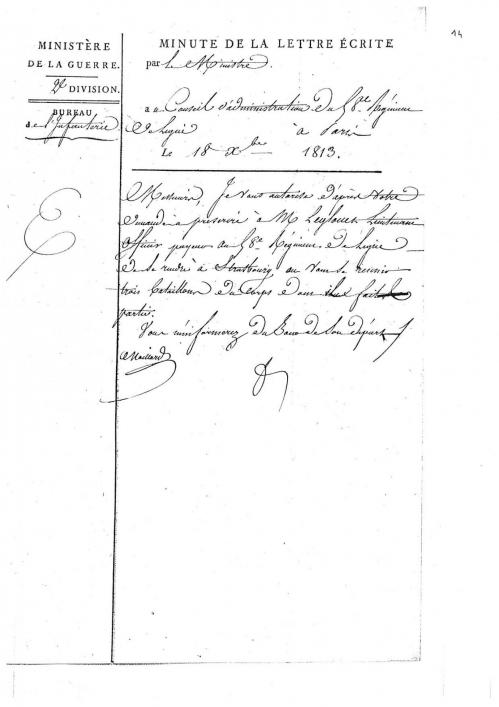 14
MINISTÈRE
DE LA GUERRE.
2e DIVISION.
BUREAU
de l'Infanterie
MINUTE DE LA LETTRE ÉCRITE
par le Ministre.
au Conseil d'administration du 8e Régiment
de Ligne à Paris
Le 18 Xbre 1813.
Messieurs, Je vous autorise d'après votre
demande à prescrire à M. Lieutenant
officier payeur au 8e Régiment de Ligne
de se rendre à Strasbourg où vont se réunir
trois Bataillons du Corps dont il fait
partie.
Vous m'informerez du Jour de son départ